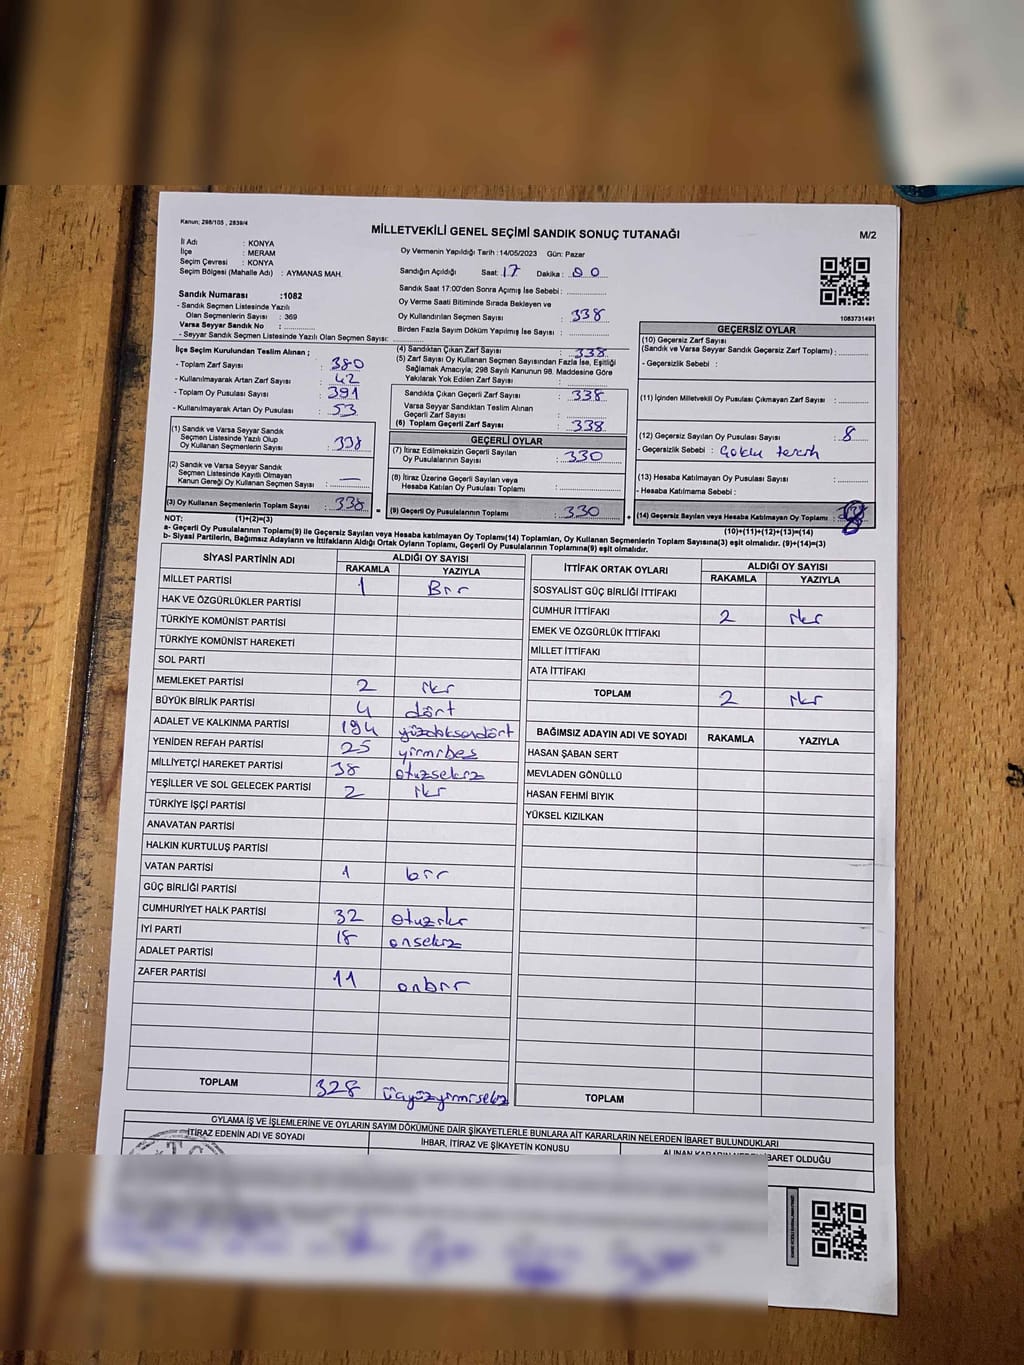 Kanun; 298/105 , 2839/4
MİLLETVEKİLİ GENEL SEÇİMİ SANDIK SONUÇ TUTANAĞI
M/2
İl Adı : KONYA
İlçe : MERAM
Seçim Çevresi : KONYA
Seçim Bölgesi (Mahalle Adı) : AYMANAS MAH.
Sandık Numarası :1082
- Sandık Seçmen Listesinde Yazılı
Olan Seçmenlerin Sayısı : 369
Varsa Seyyar Sandık No :
- Seyyar Sandık Seçmen Listesinde Yazılı Olan Seçmen Sayısı:
İlçe Seçim Kurulundan Teslim Alınan ;
- Toplam Zarf Sayısı : 380
- Kullanılmayarak Artan Zarf Sayısı : 42
- Toplam Oy Pusulası Sayısı : 391
- Kullanılmayarak Artan Oy Pusulası : 53
(1) Sandık ve Varsa Seyyar Sandık
Seçmen Listesinde Yazılı Olup
Oy Kullanan Seçmenlerin Sayısı : 338
(2) Sandık ve Varsa Seyyar Sandık
Seçmen Listesinde Kayıtlı Olmayan
Kanun Gereği Oy Kullanan Seçmen Sayısı : —
(3) Oy Kullanan Seçmenlerin Toplam Sayısı : 338
(1)+(2)=(3)
Oy Vermenin Yapıldığı Tarih :14/05/2023 Gün: Pazar
Sandığın Açıldığı Saat: 17 Dakika : 00
Sandık Saat 17:00'den Sonra Açımış İse Sebebi :
Oy Verme Saati Bitiminde Sırada Bekleyen ve
Oy Kullandırılan Seçmen Sayısı : 338
Birden Fazla Sayım Döküm Yapılmış İse Sayısı :
(4) Sandıktan Çıkan Zarf Sayısı : 338
(5) Zarf Sayısı Oy Kullanan Seçmen Sayısından Fazla İse, Eşitliği
Sağlamak Amacıyla; 298 Sayılı Kanunun 98. Maddesine Göre
Yakılarak Yok Edilen Zarf Sayısı :
Sandıkla Çıkan Geçerli Zarf Sayısı : 338
Varsa Seyyar Sandıktan Teslim Alınan
Geçerli Zarf Sayısı :
(6) Toplam Geçerli Zarf Sayısı : 338
GEÇERLİ OYLAR
(7) İtiraz Edilmeksizin Geçerli Sayılan
Oy Pusulalarının Sayısı : 330
(8) İtiraz Üzerine Geçerli Sayılan veya
Hesaba Katılan Oy Pusulası Toplamı :
(9) Geçerli Oy Pusulalarının Toplamı : 330
1083731491
GEÇERSİZ OYLAR
(10) Geçersiz Zarf Sayısı
(Sandık ve Varsa Seyyar Sandık Geçersiz Zarf Toplamı) :
- Geçersizlik Sebebi :
(11) İçinden Milletvekili Oy Pusulası Çıkmayan Zarf Sayısı :
(12) Geçersiz Sayılan Oy Pusulası Sayısı : 8
- Geçersizlik Sebebi : Çoklu tercih
(13) Hesaba Katılmayan Oy Pusulası Sayısı :
- Hesaba Katılmama Sebebi :
(14) Geçersiz Sayılan veya Hesaba Katılmayan Oy Toplamı : 8
(10)+(11)+(12)+(13)=(14)
NOT:
a- Geçerli Oy Pusulalarının Toplamı(9) ile Geçersiz Sayılan veya Hesaba katılmayan Oy Toplamı(14) Toplamları, Oy Kullanan Seçmenlerin Toplam Sayısına(3) eşit olmalıdır. (9)+(14)=(3)
b- Siyasi Partilerin, Bağımsız Adayların ve İttifakların Aldığı Ortak Oyların Toplamı, Geçerli Oy Pusulalarının Toplamına(9) eşit olmalıdır.
SİYASİ PARTİNİN ADI ALDIĞI OY SAYISI
RAKAMLA YAZIYLA
MİLLET PARTİSİ 1 Bir
HAK VE ÖZGÜRLÜKLER PARTİSİ
TÜRKİYE KOMÜNİST PARTİSİ
TÜRKİYE KOMÜNİST HAREKETİ
SOL PARTİ
MEMLEKET PARTİSİ 2 iki
BÜYÜK BİRLİK PARTİSİ 4 dört
ADALET VE KALKINMA PARTİSİ 194 yüzdoksandört
YENİDEN REFAH PARTİSİ 25 yirmibeş
MİLLİYETÇİ HAREKET PARTİSİ 38 otuzsekiz
YEŞİLLER VE SOL GELECEK PARTİSİ 2 iki
TÜRKİYE İŞÇİ PARTİSİ
ANAVATAN PARTİSİ
HALKIN KURTULUŞ PARTİSİ
VATAN PARTİSİ 1 bir
GÜÇ BİRLİĞİ PARTİSİ
CUMHURİYET HALK PARTİSİ 32 otuziki
İYİ PARTİ 18 onsekiz
ADALET PARTİSİ
ZAFER PARTİSİ 11 onbir
TOPLAM 328 üçyüzyirmisekiz
İTTİFAK ORTAK OYLARI ALDIĞI OY SAYISI
RAKAMLA YAZIYLA
SOSYALİST GÜÇ BİRLİĞİ İTTİFAKI
CUMHUR İTTİFAKI 2 iki
EMEK VE ÖZGÜRLÜK İTTİFAKI
MİLLET İTTİFAKI
ATA İTTİFAKI
TOPLAM 2 iki
BAĞIMSIZ ADAYIN ADI VE SOYADI RAKAMLA YAZIYLA
HASAN ŞABAN SERT
MEVLADEN GÖNÜLLÜ
HASAN FEHMİ BIYIK
YÜKSEL KIZILKAN
TOPLAM
OYLAMA İŞ VE İŞLEMLERİNE VE OYLARIN SAYIM DÖKÜMÜNE DAİR ŞİKAYETLERLE BUNLARA AİT KARARLARIN NELERDEN İBARET BULUNDUKLARI
İTİRAZ EDENİN ADI VE SOYADI İHBAR, İTİRAZ VE ŞİKAYETİN KONUSU ALINAN KARARIN NEDEN İBARET OLDUĞU
T.C.